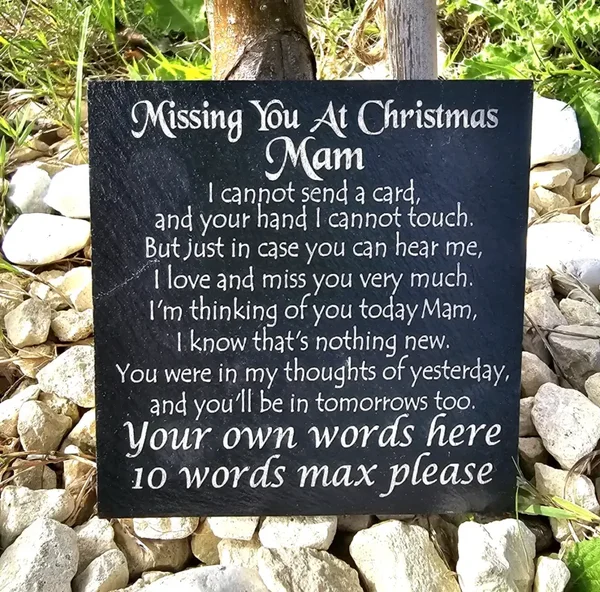 Missing You At Christmas
Mam
I cannot send a card,
and your hand I cannot touch.
But just in case you can hear me,
I love and miss you very much.
I'm thinking of you today Mam,
I know that's nothing new.
You were in my thoughts of yesterday,
and you'll be in tomorrows too.
Your own words here
10 words max please